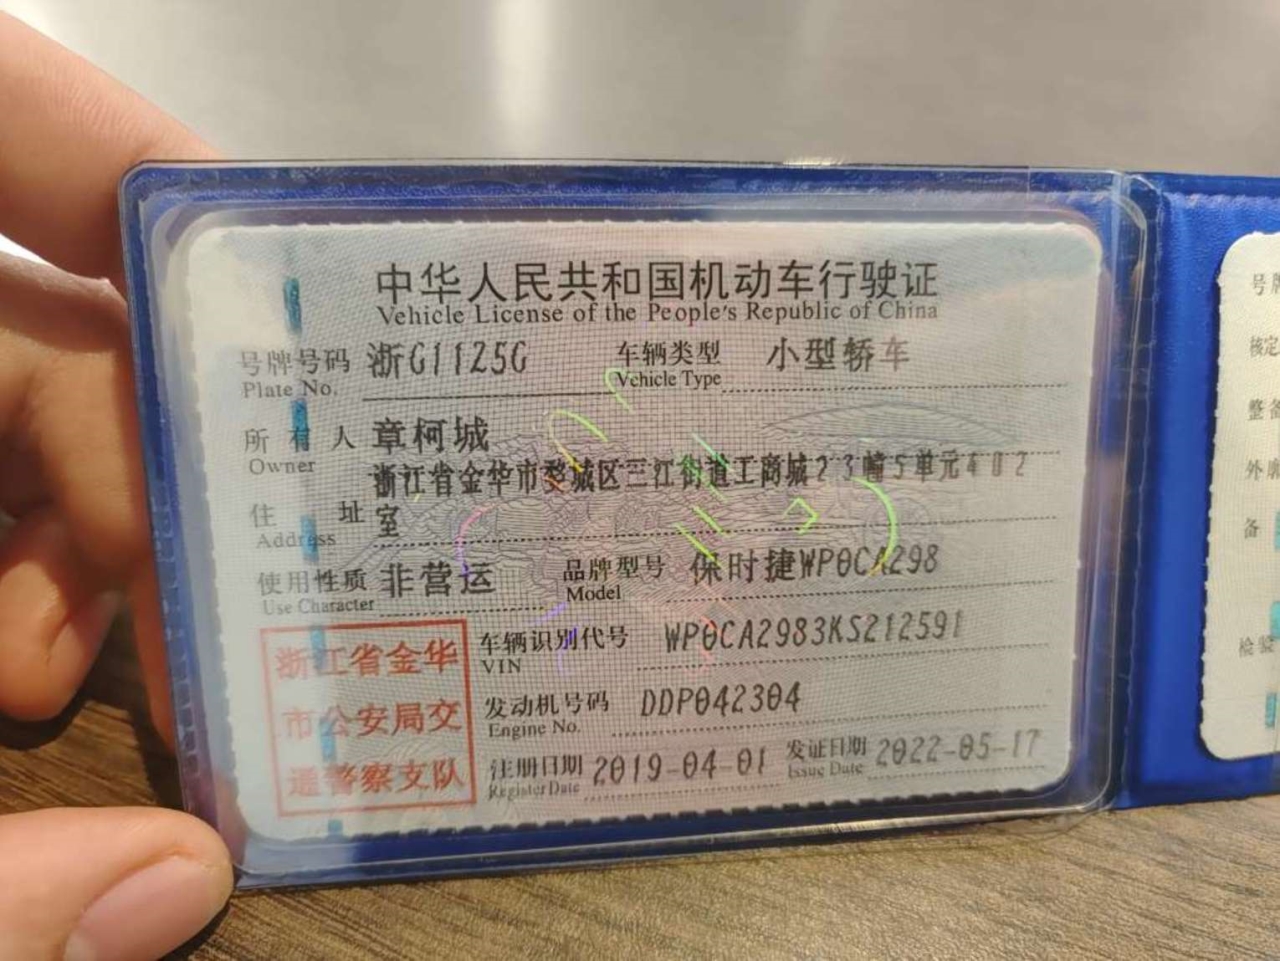 中华人民共和国机动车行驶证
Vehicle License of the People's Republic of China
号牌号码 浙G1125G 车辆类型 小型轿车
Plate No. Vehicle Type
所有人 章柯城
Owner
浙江省金华市婺城区三江街道工商城23幢5单元402
住址 室
Address
使用性质 非营运 品牌型号 保时捷WP0CA298
Use Character Model
浙江省金华
市公安局交
通警察支队
车辆识别代号 WP0CA2983KS212591
VIN
发动机号码 DDP042304
Engine No.
注册日期 2019-04-01 发证日期 2022-05-17
Register Date Issue Date
号牌
核定
整备
外廓
备
检验